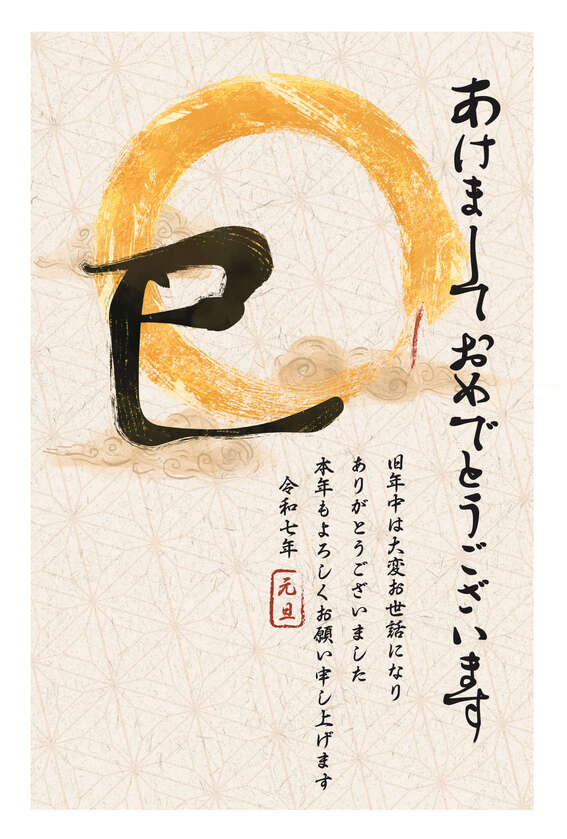 あけましておめでとうございます
巳
旧年中は大変お世話になり
ありがとうございました
本年もよろしくお願い申し上げます
令和七年
元旦